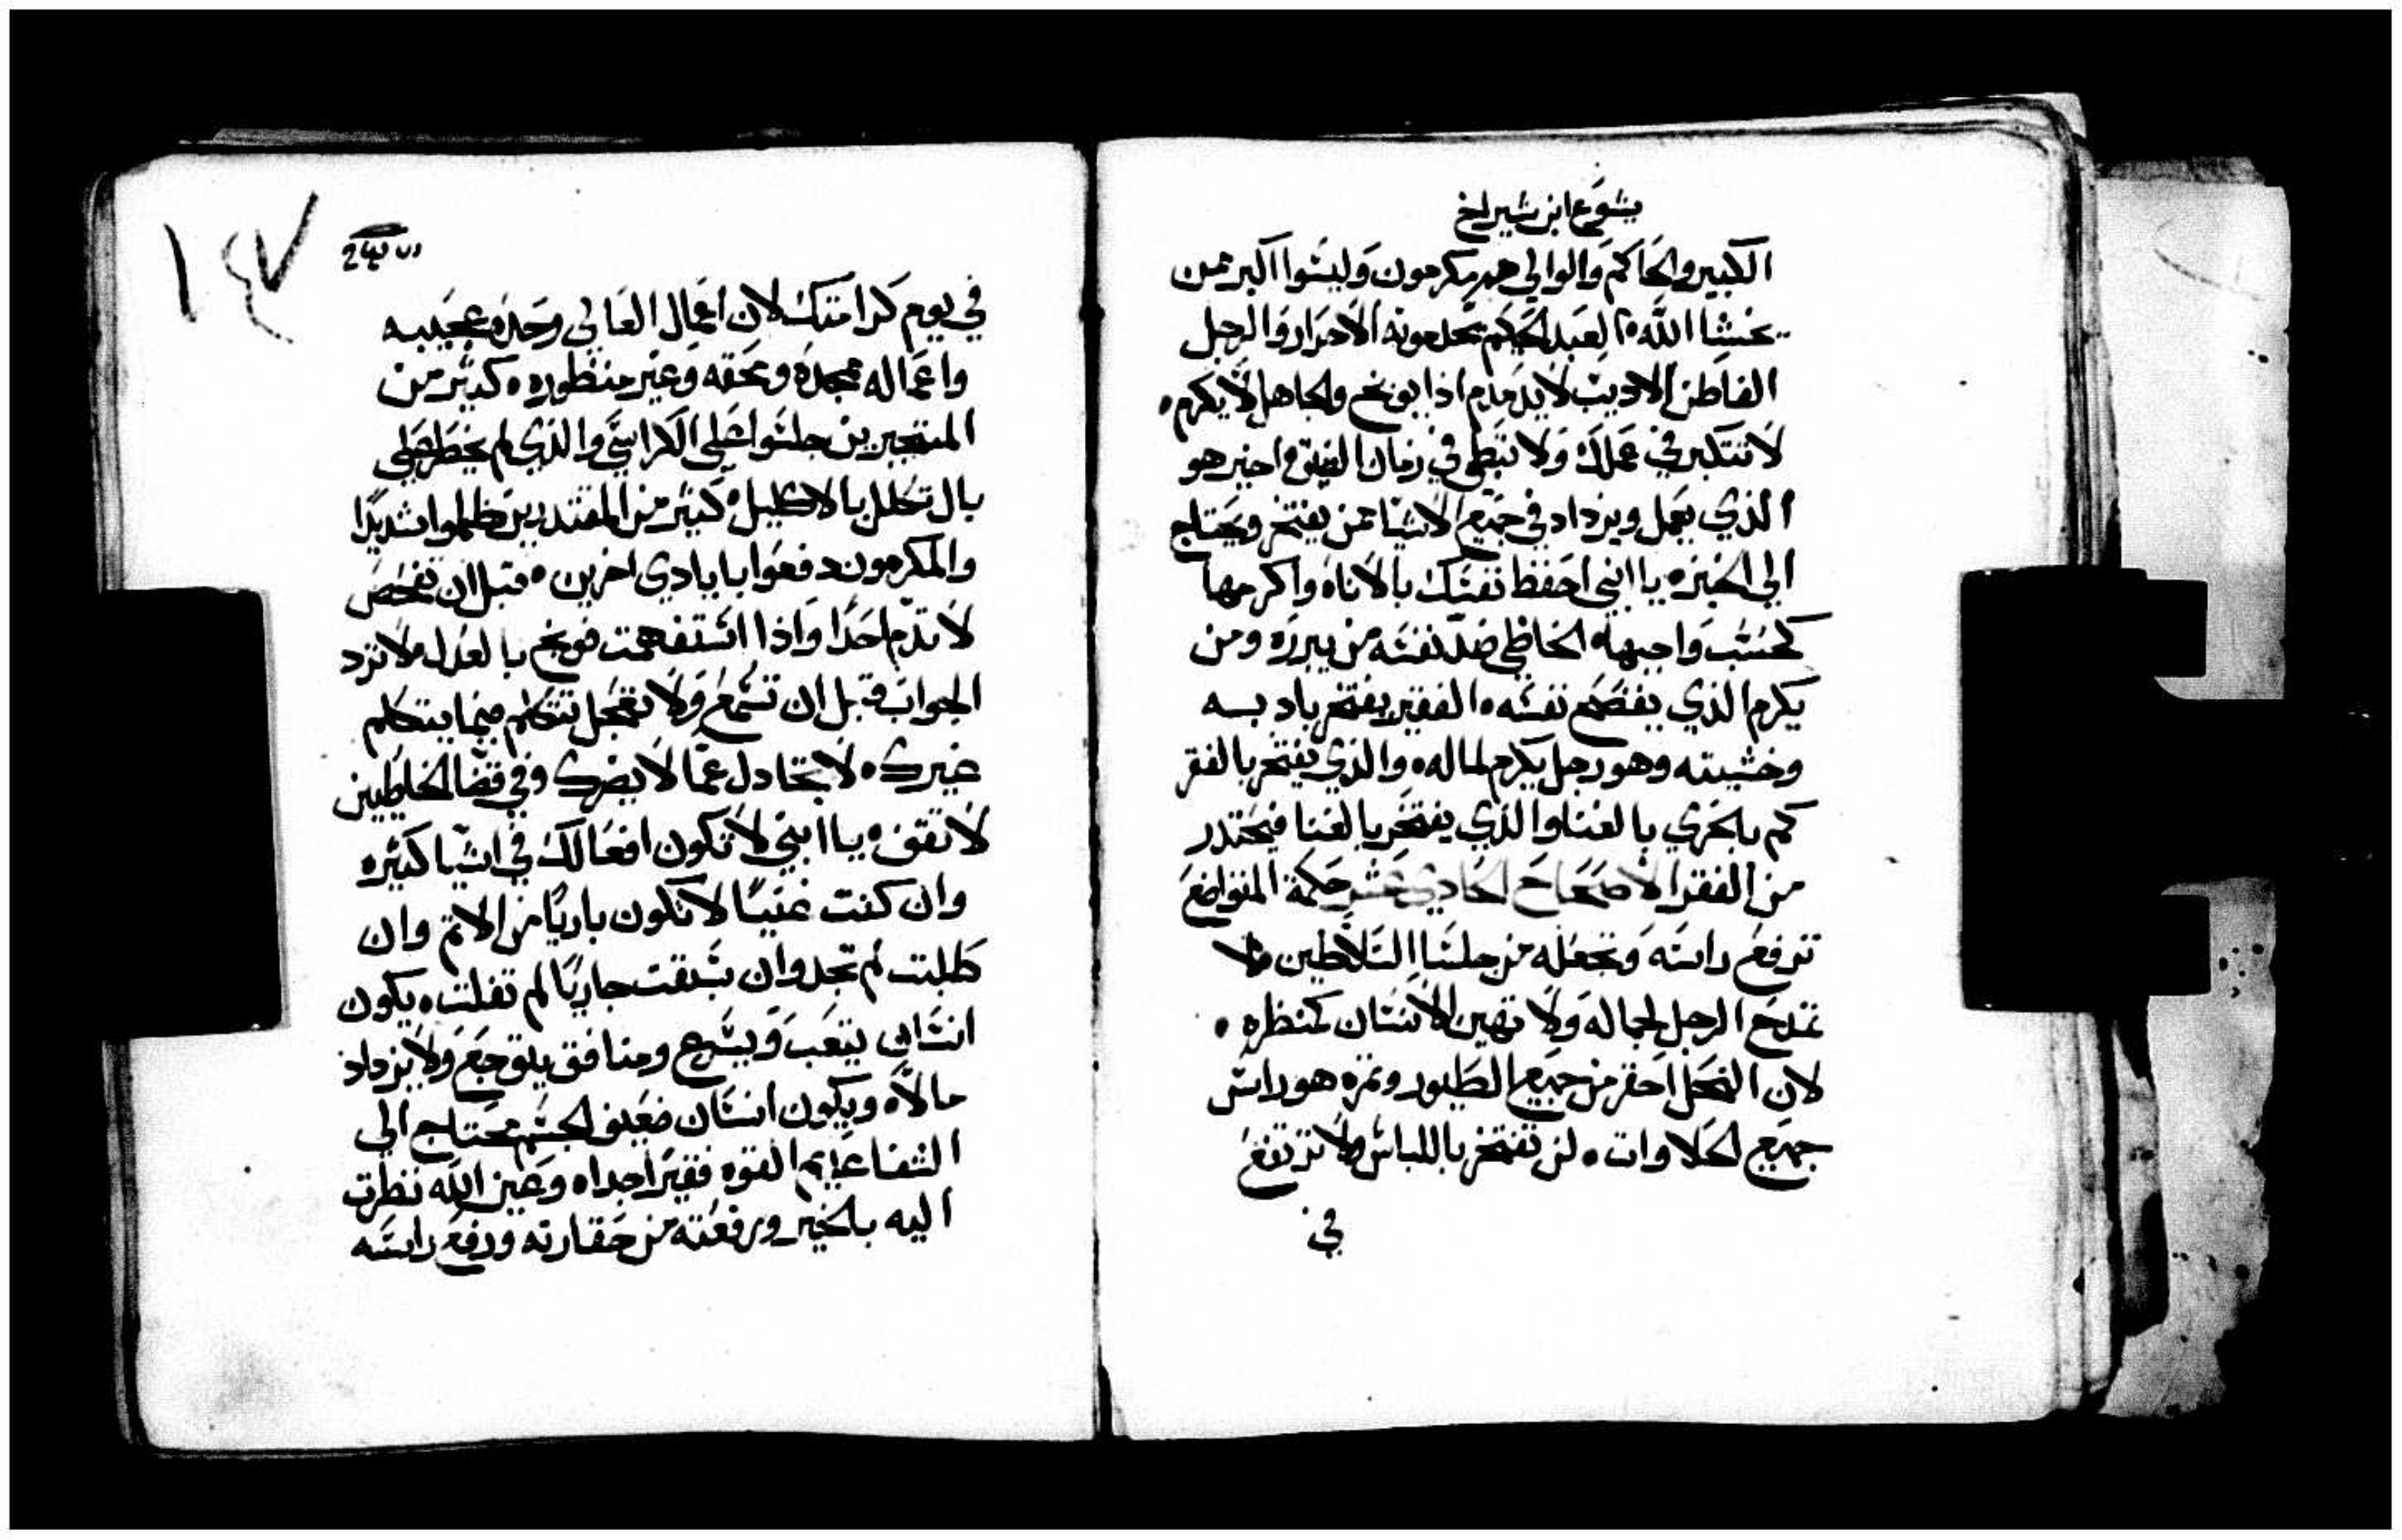 يشوع ابن شيراخ
الكبير والحاكم والوالي هم مكرمون وليسوا اكبر ممن
يخشا الله • العبد الحكيم يخدمونه الاحرار والرجل
الفاطن الاديب لا يذمدم اذا يوبخ والجاهل لا يكرم •
لا تتكبر في عملك ولا تبطي في زمان الضيق • اخير هو
الذي يعمل ويزداد في جميع الاشيا ممن يفتخر ويحتاج
الي الخبز • يا ابني احفظ نفسك بالاناه واكرمها
كحسب واجبها • الخاطي ضد نفسه من يبرره ومن
يكرم الذي يفضح نفسه • الفقير يفتخر بادبه
وخشيته وهو رجل يكرم لماله • والذي يفتخر بالفقر
كم بالحري بالغنا والذي يفتخر بالغنا فيحتدر
من الفقر الاصحاح الحادي عشر حكمة المتواضع
ترفع راسه وتجعله من جلسا السلاطين • لا
تمدح الرجل لجماله ولا تهين الانسان كمنظره •
لان النحل احقر من جميع الطيور وثمره هو راس
جميع الحلاوات • لن تفتخر باللباس ولا ترتفع
في
١٤٧
في يوم كرامتك لان اعمال العالي وحده عجيبه
واعماله ممجده ومخفه وغير منظوره • كثير من
المتجبرين جلسوا علي الكراسي والذي لم يخطر علي
بال تكلل بالاكليل • كثير من المقتدرين ظلموا شديدًا
والمكرمون دفعوا بايادي اخرين • قبل ان تفحص
لا تذم احدًا واذا استفهمت فوبخ بالعدل • لا ترد
الجواب قبل ان تسمع ولا تعجل تتكلم فيما يتكلم
غيرك • لا تجادل عما لا يضرك وفي قضا الخاطيين
لا تقف • يا ابني لا تكون افعالك في اشيا كثيره
وان كنت غنيًا لا تكون باريًا من الاثم وان
طلبت لم تجد وان سبقت جاريًا لم تفلت • يكون
انسان يتعب ويسرع ومنافق يتوجع ولا يزداد
مالاً • ويكون انسان ضعيف الجسم محتاج الي
الشفا عديم القوه فقيرًا جدا • وعين الله نظرت
اليه بالخير ورفعته من حقارته ورفع راسه